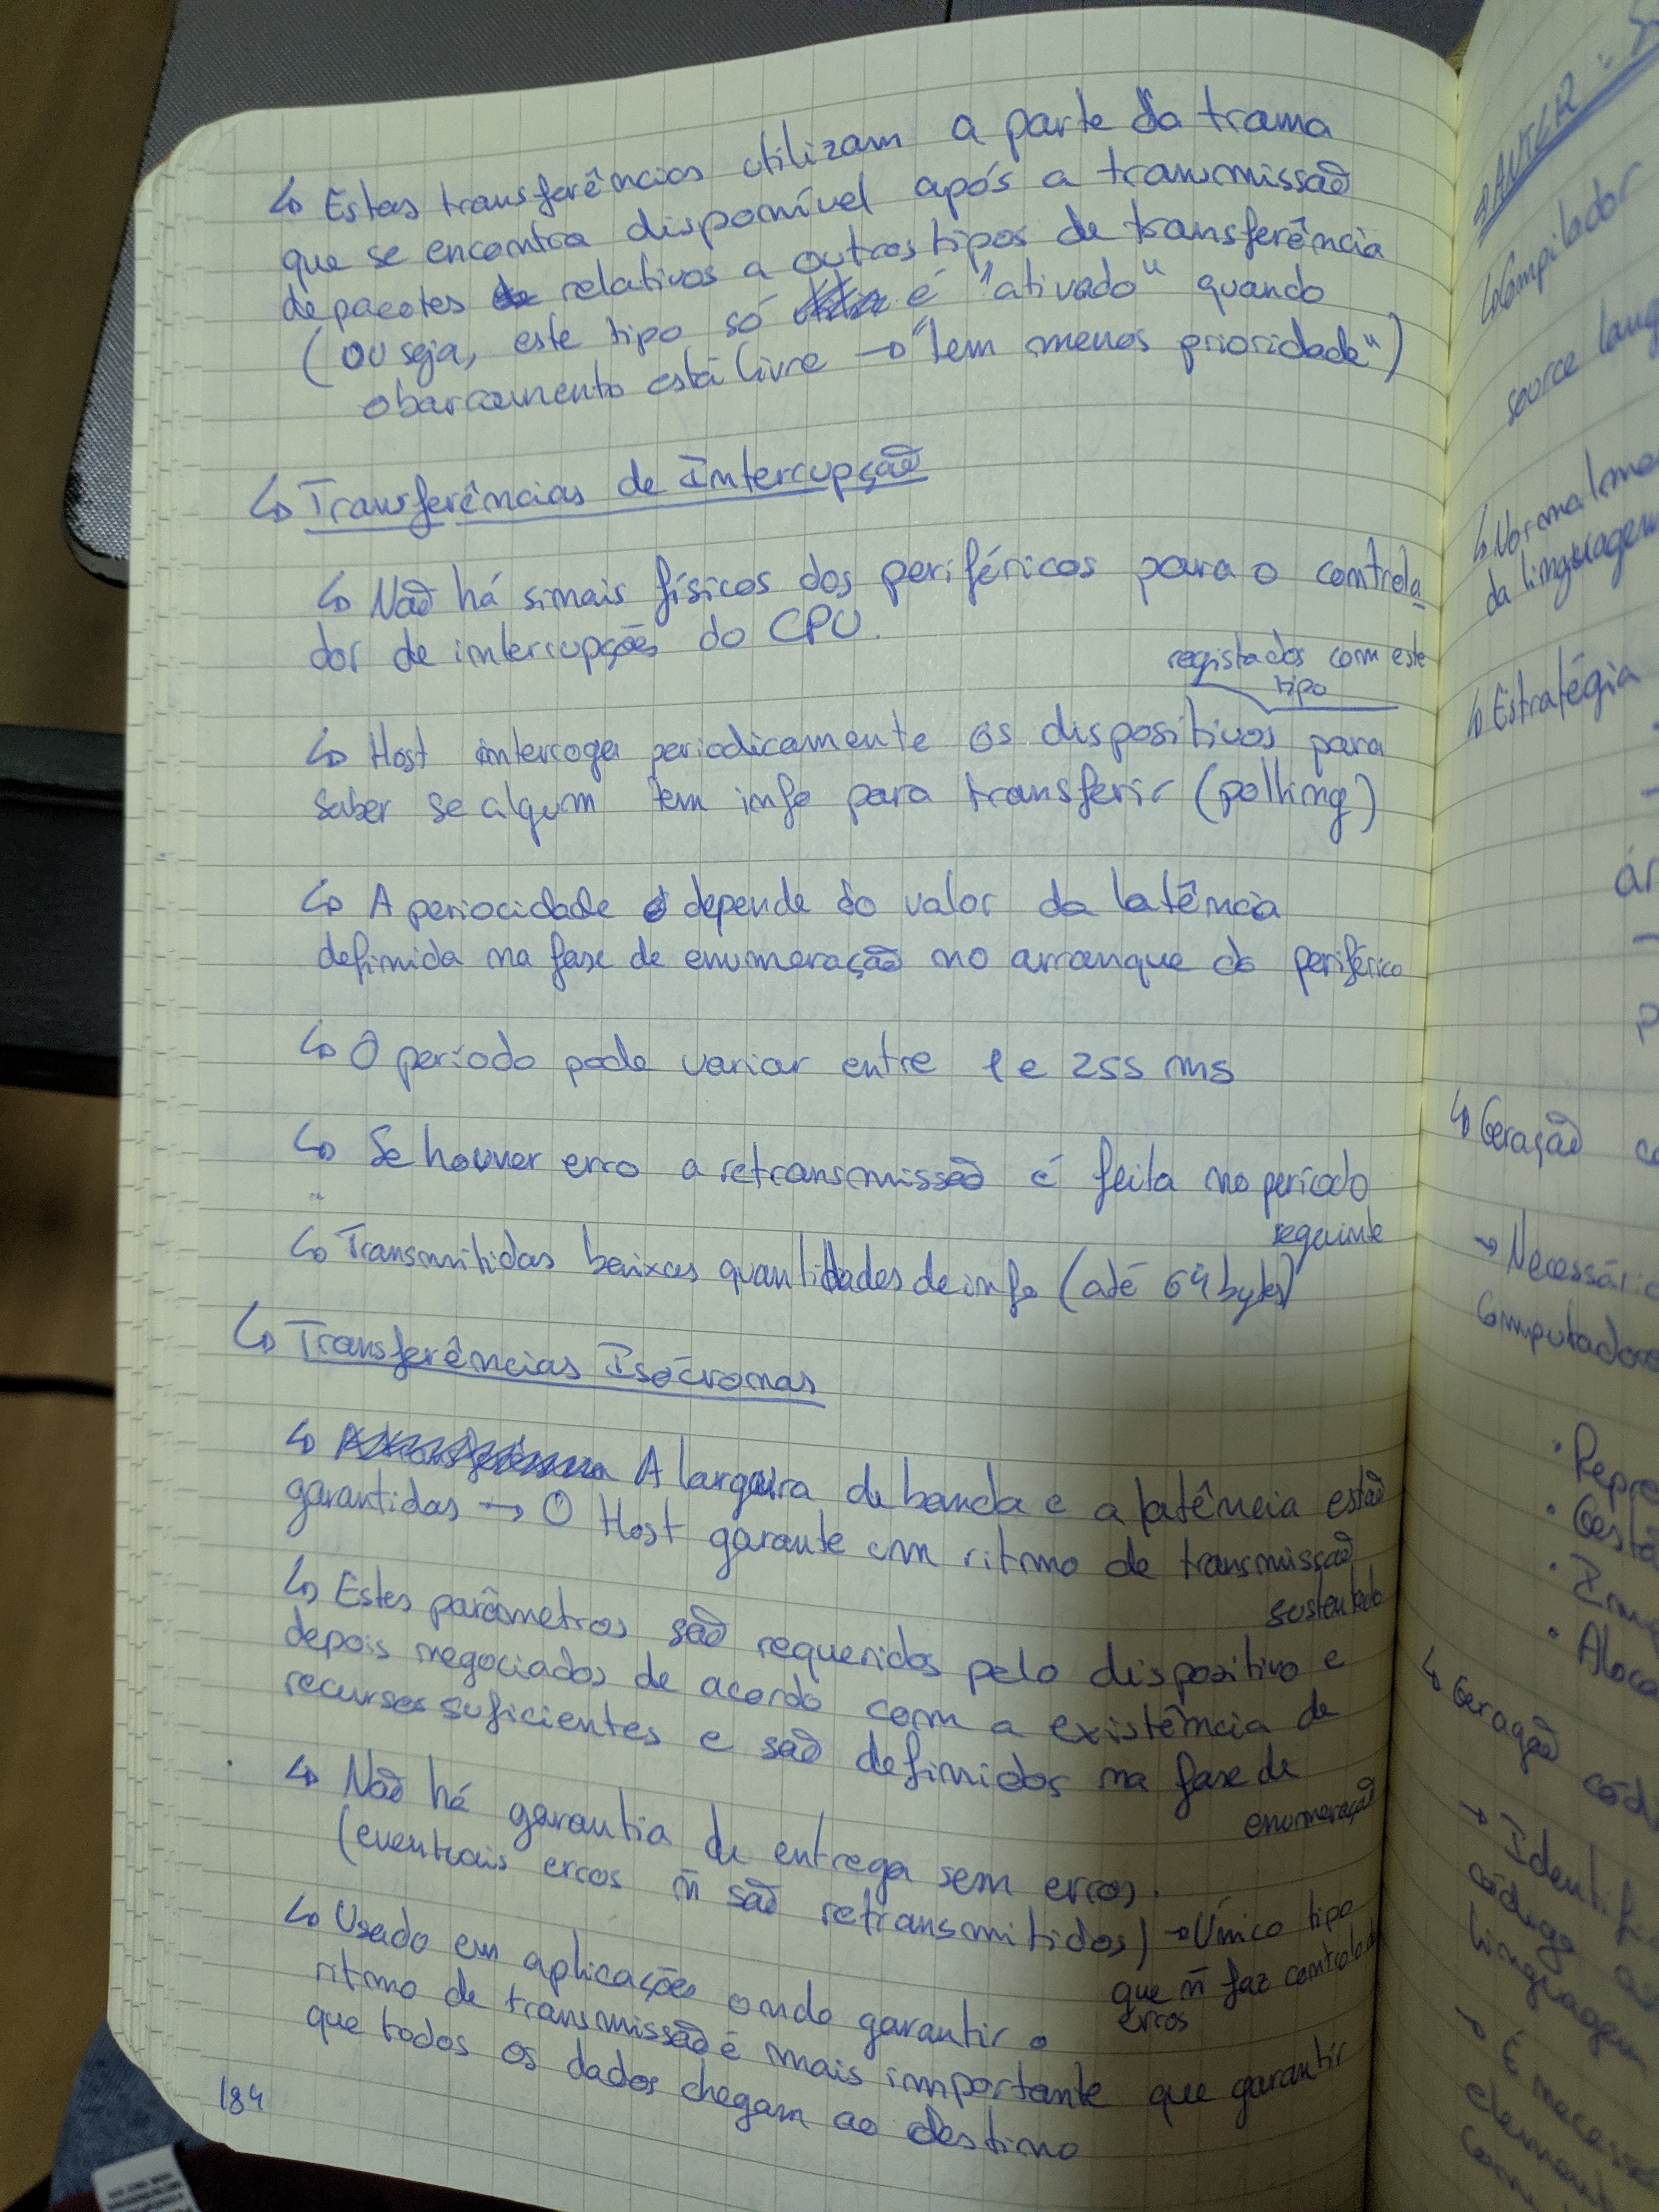 ↳ Estas transferências utilizam a parte da trama
que se encontra disponível após a transmissão
de pacotes relativos a outros tipos de transferência
(ou seja, este tipo só é "ativado" quando
o barramento está livre → "tem menos prioridade")
↳ Transferências de Interrupção
↳ Não há sinais físicos dos periféricos para o controla
dor de interrupções do CPU.
registados com este
tipo
↳ Host interroga periodicamente os dispositivos para
saber se algum tem info para transferir (polling)
↳ A periocidade depende do valor da latência
definida na fase de enumeração no arranque do periférico
↳ O período pode variar entre 1 e 255 ms
↳ Se houver erro a retransmissão é feita no período
seguinte
↳ Transmitidas baixas quantidades de info (até 64 bytes)
↳ Transferências Isócronas
↳ A largura de banda e a latência estão
garantidas → O Host garante um ritmo de transmissão
sustentado
↳ Estes parâmetros são requeridos pelo dispositivo e
depois negociados de acordo com a existência de
recursos suficientes e são definidos na fase de
enumeração
↳ Não há garantia de entrega sem erros.
(eventuais erros ñ são retransmitidos) → Único tipo
que ñ faz controlo de
erros
↳ Usado em aplicações onde garantir o
ritmo de transmissão é mais importante que garantir
que todos os dados chegam ao destino
184
↳ Compilador
source lang
↳ Normalme
da linguagem
↳ Estratégia
↳ Geração
→ Necessári
Computador
• Repre
• Gestã
• Aloca
↳ Geração cód
→ Identifi
linguagem